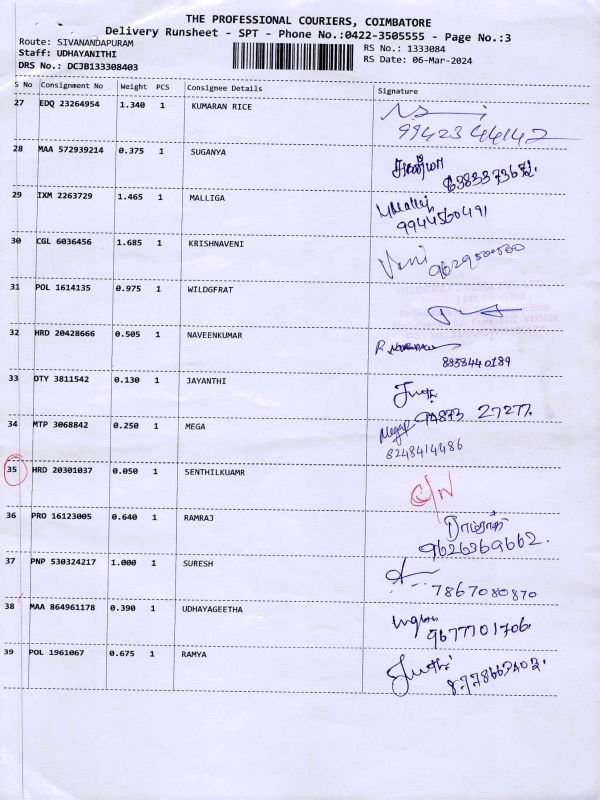 THE PROFESSIONAL COURIERS, COIMBATORE
Delivery Runsheet - SPT - Phone No.:0422-3505555 - Page No.:3
Route: SIVANANDAPURAM
Staff: UDHAYANITHI
DRS No.: DCJB133308403
RS No.: 1333084
RS Date: 06-Mar-2024
S No Consignment No Weight PCS Consignee Details Signature
27 EDQ 23264954 1.340 1 KUMARAN RICE
9942344142
28 MAA 572939214 0.375 1 SUGANYA
6383373672.
29 IXM 2263729 1.465 1 MALLIGA
9944560491
30 CGL 6036456 1.685 1 KRISHNAVENI Veni
31 POL 1614135 0.975 1 WILDGFRAT
32 HRD 20428666 0.505 1 NAVEENKUMAR
8858440189
33 DTY 3811542 0.130 1 JAYANTHI
94873 27277.
34 MTP 3068842 0.250 1 MEGA Mega
8248414486
35 HRD 20301037 0.050 1 SENTHILKUAMR
36 PRO 16123005 0.640 1 RAMRAJ ராம்ராஜ்
9626369662.
37 PNP 530324217 1.000 1 SURESH
7867080870
38 MAA 864961178 0.390 1 UDHAYAGEETHA
9677701706.
39 POL 1961067 0.675 1 RAMYA